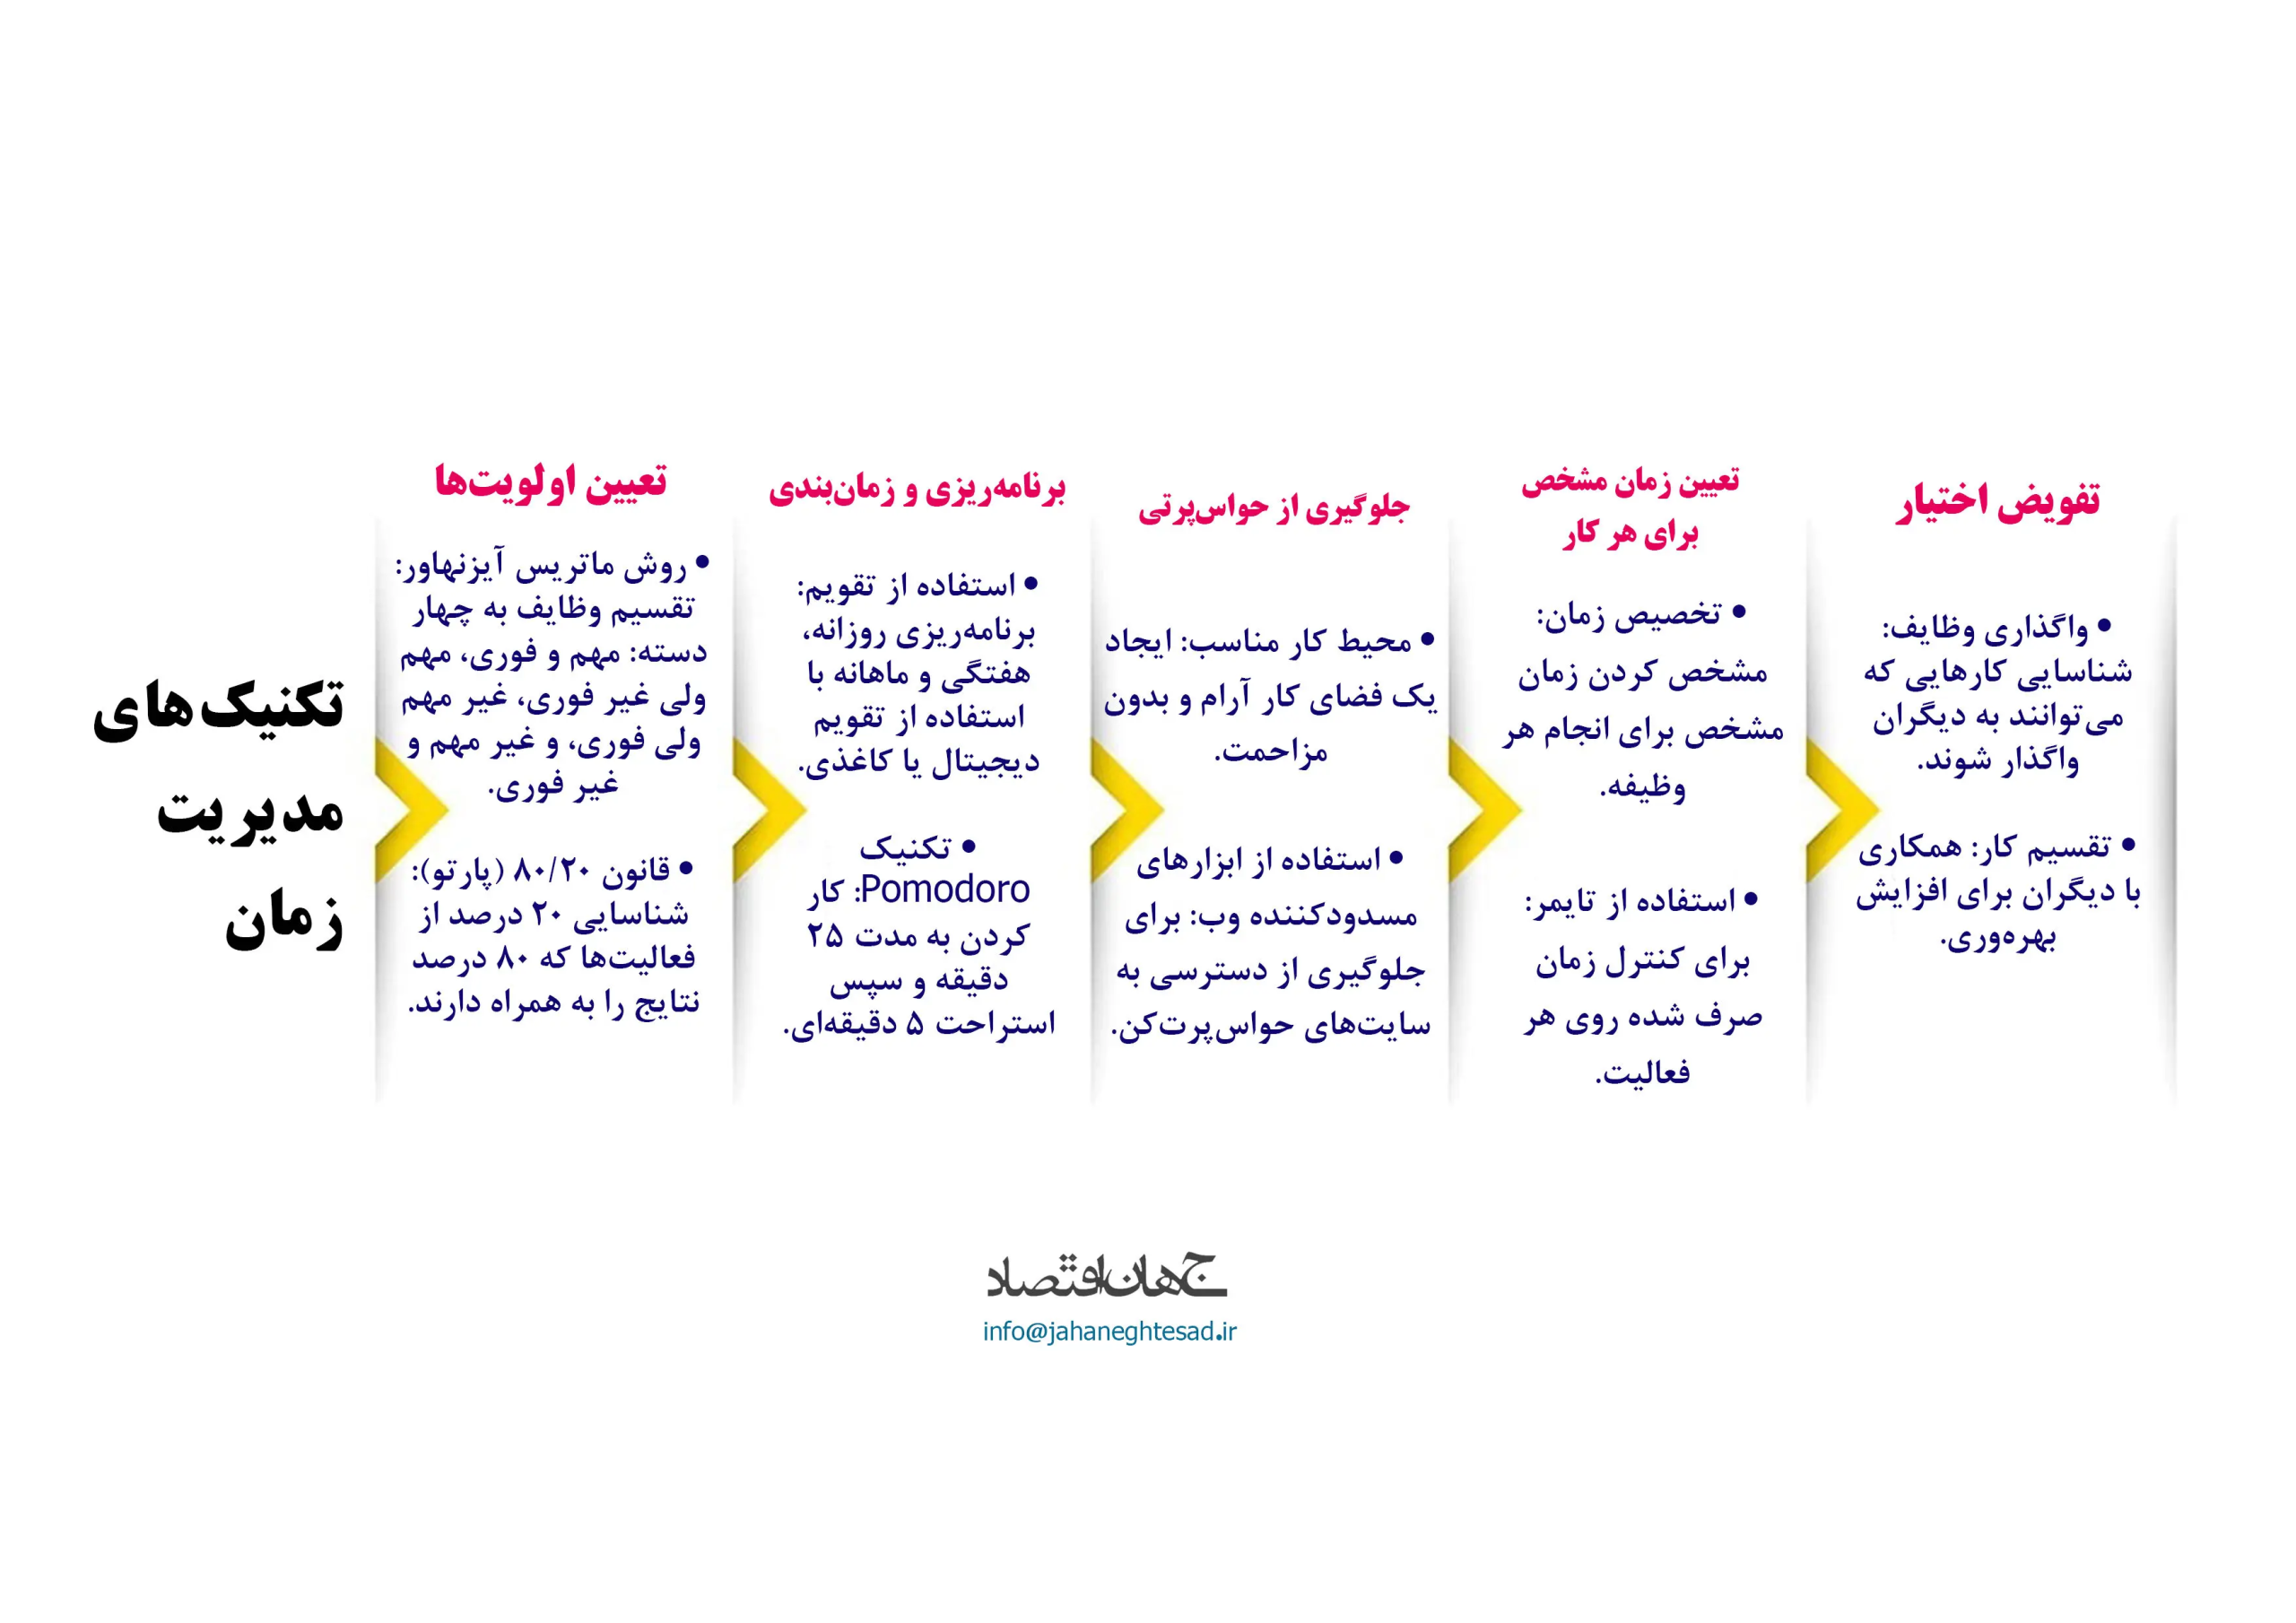 تکنیک‌های
مدیریت
زمان
تعیین اولویت‌ها
• روش ماتریس آیزنهاور:
تقسیم وظایف به چهار
دسته: مهم و فوری، مهم
ولی غیر فوری، غیر مهم
ولی فوری، و غیر مهم و
غیر فوری.
• قانون ۸۰/۲۰ (پارتو):
شناسایی ۲۰ درصد از
فعالیت‌ها که ۸۰ درصد
نتایج را به همراه دارند.
برنامه‌ریزی و زمان‌بندی
• استفاده از تقویم:
برنامه‌ریزی روزانه،
هفتگی و ماهانه با
استفاده از تقویم
دیجیتال یا کاغذی.
• تکنیک
Pomodoro: کار
کردن به مدت ۲۵
دقیقه و سپس
استراحت ۵ دقیقه‌ای.
جلوگیری از حواس‌پرتی
• محیط کار مناسب: ایجاد
یک فضای کار آرام و بدون
مزاحمت.
• استفاده از ابزارهای
مسدودکننده وب: برای
جلوگیری از دسترسی به
سایت‌های حواس‌پرت‌کن.
تعیین زمان مشخص
برای هر کار
• تخصیص زمان:
مشخص کردن زمان
مشخص برای انجام هر
وظیفه.
• استفاده از تایمر:
برای کنترل زمان
صرف شده روی هر
فعالیت.
تفویض اختیار
• واگذاری وظایف:
شناسایی کارهایی که
می‌توانند به دیگران
واگذار شوند.
• تقسیم کار: همکاری
با دیگران برای افزایش
بهره‌وری.
جهان‌اقتصاد
info@jahaneghtesad.ir